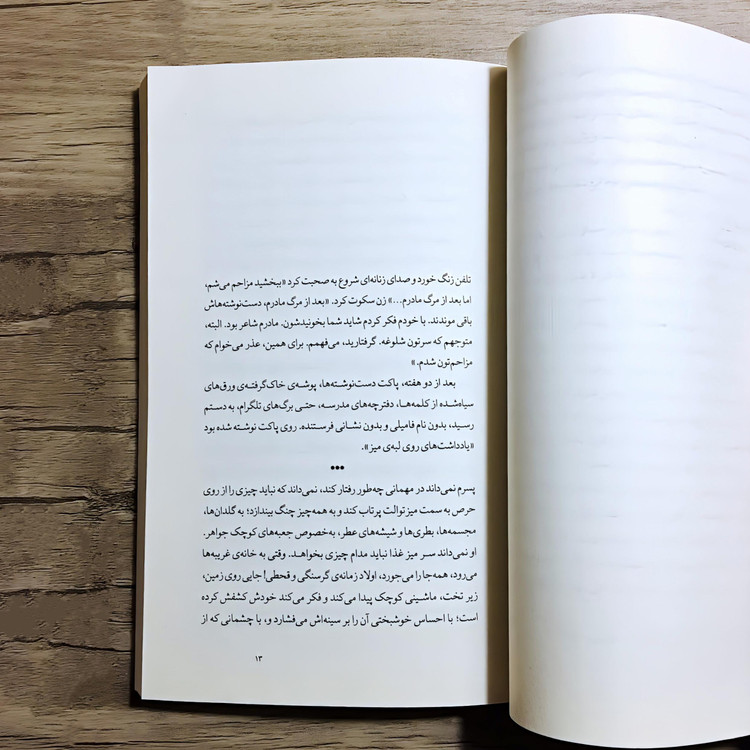 تلفن زنگ خورد و صدای زنانه‌ای شروع به صحبت کرد «ببخشید مزاحم می‌شم،
اما بعد از مرگ مادرم...» زن سکوت کرد. «بعد از مرگ مادرم، دست‌نوشته‌هاش
باقی موندند. با خودم فکر کردم شاید شما بخونیدشون. مادرم شاعر بود. البته،
متوجهم که سرتون شلوغه. گرفتارید، می‌فهمم. برای همین، عذر می‌خوام که
مزاحم‌تون شدم.»
بعد از دو هفته، پاکت دست‌نوشته‌ها، پوشه‌ی خاک‌گرفته‌ی ورق‌های
سیاه‌شده از کلمه‌ها، دفترچه‌های مدرسه، حتی برگ‌های تلگرام، به دستم
رسید، بدون نام فامیلی و بدون نشانی فرستنده. روی پاکت نوشته شده بود
«یادداشت‌های روی لبه‌ی میز».
•••
پسرم نمی‌داند در مهمانی چه‌طور رفتار کند، نمی‌داند که نباید چیزی را از روی
حرص به سمت میز توالت پرتاب کند و به همه‌چیز چنگ بیندازد؛ به گلدان‌ها،
مجسمه‌ها، بطری‌ها و شیشه‌های عطر، به‌خصوص جعبه‌های کوچک جواهر.
او نمی‌داند سر میز غذا نباید مدام چیزی بخواهد. وقتی به خانه‌ی غریبه‌ها
می‌رود، همه‌جا را می‌جورد، اولاد زمانه‌ی گرسنگی و قحطی! جایی روی زمین،
زیر تخت، ماشینی کوچک پیدا می‌کند و فکر می‌کند خودش کشفش کرده
است؛ با احساس خوشبختی آن را بر سینه‌اش می‌فشارد و، با چشمانی که از
۱۳